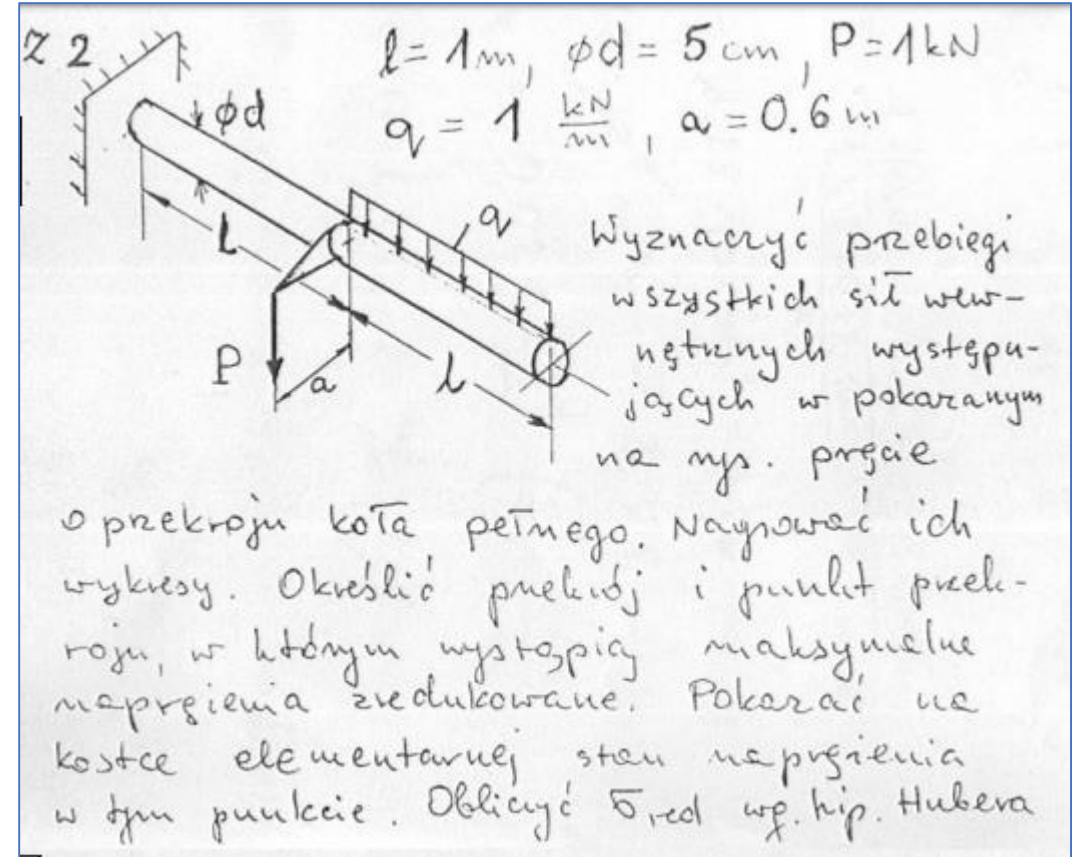 Z 2
l = 1 m, ϕd = 5 cm, P = 1 kN
q = 1 kN/m, a = 0.6 m
ϕd
l
q
P
a
l
Wyznaczyć przebiegi
wszystkich sił wew-
nętrznych występu-
jących w pokazanym
na rys. pręcie
o przekroju koła pełnego. Narysować ich
wykresy. Określić przekrój i punkt przek-
roju, w którym wystąpią maksymalne
naprężenia zredukowane. Pokazać na
kostce elementarnej stan naprężenia
w tym punkcie. Obliczyć σ,red wg. hip. Hubera